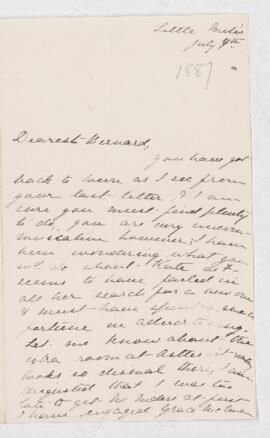 Little
July 4th
1887
Dearest Bernard,
you have got
back to town as I see from
your last letter & I am
sure you must find plenty
to do, you are very
however, I have
been wondering what you
do about Kate as
seems to have failed in
all her search for a
& must have spent a small
fortune in advertising.
Let me know about the
extra room at it really
looks so dismal there, I am
disgusted that I was too
late to get at first
I have engaged Grace